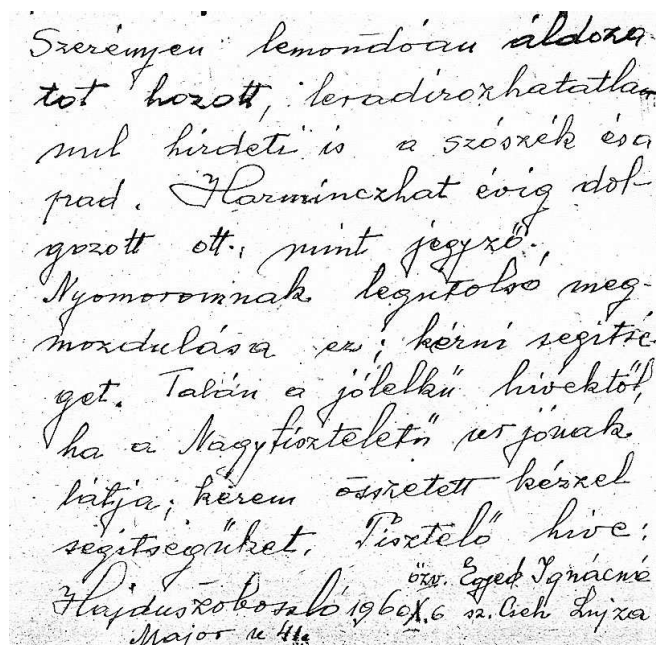 Szerényen lemondóan áldoza
tot hozott, leradirozhatatla
nul hirdeti is a szószék és a
pad. Harminczhat évig dol-
gozott ott, mint jegyző.
Nyomoromnak legutolsó meg-
mozdulása ez; kérni segitsé
get. Talán a jólelkű hivektől,
ha a Nagytiszteletű ur jónak
látja; kérem összetett kézzel
segitségüket. Tisztelő hive:
özv. Egyed Ignácné
Hajduszoboszló 1960 X. 6 sz. Cseh Lujza
Major u 41.